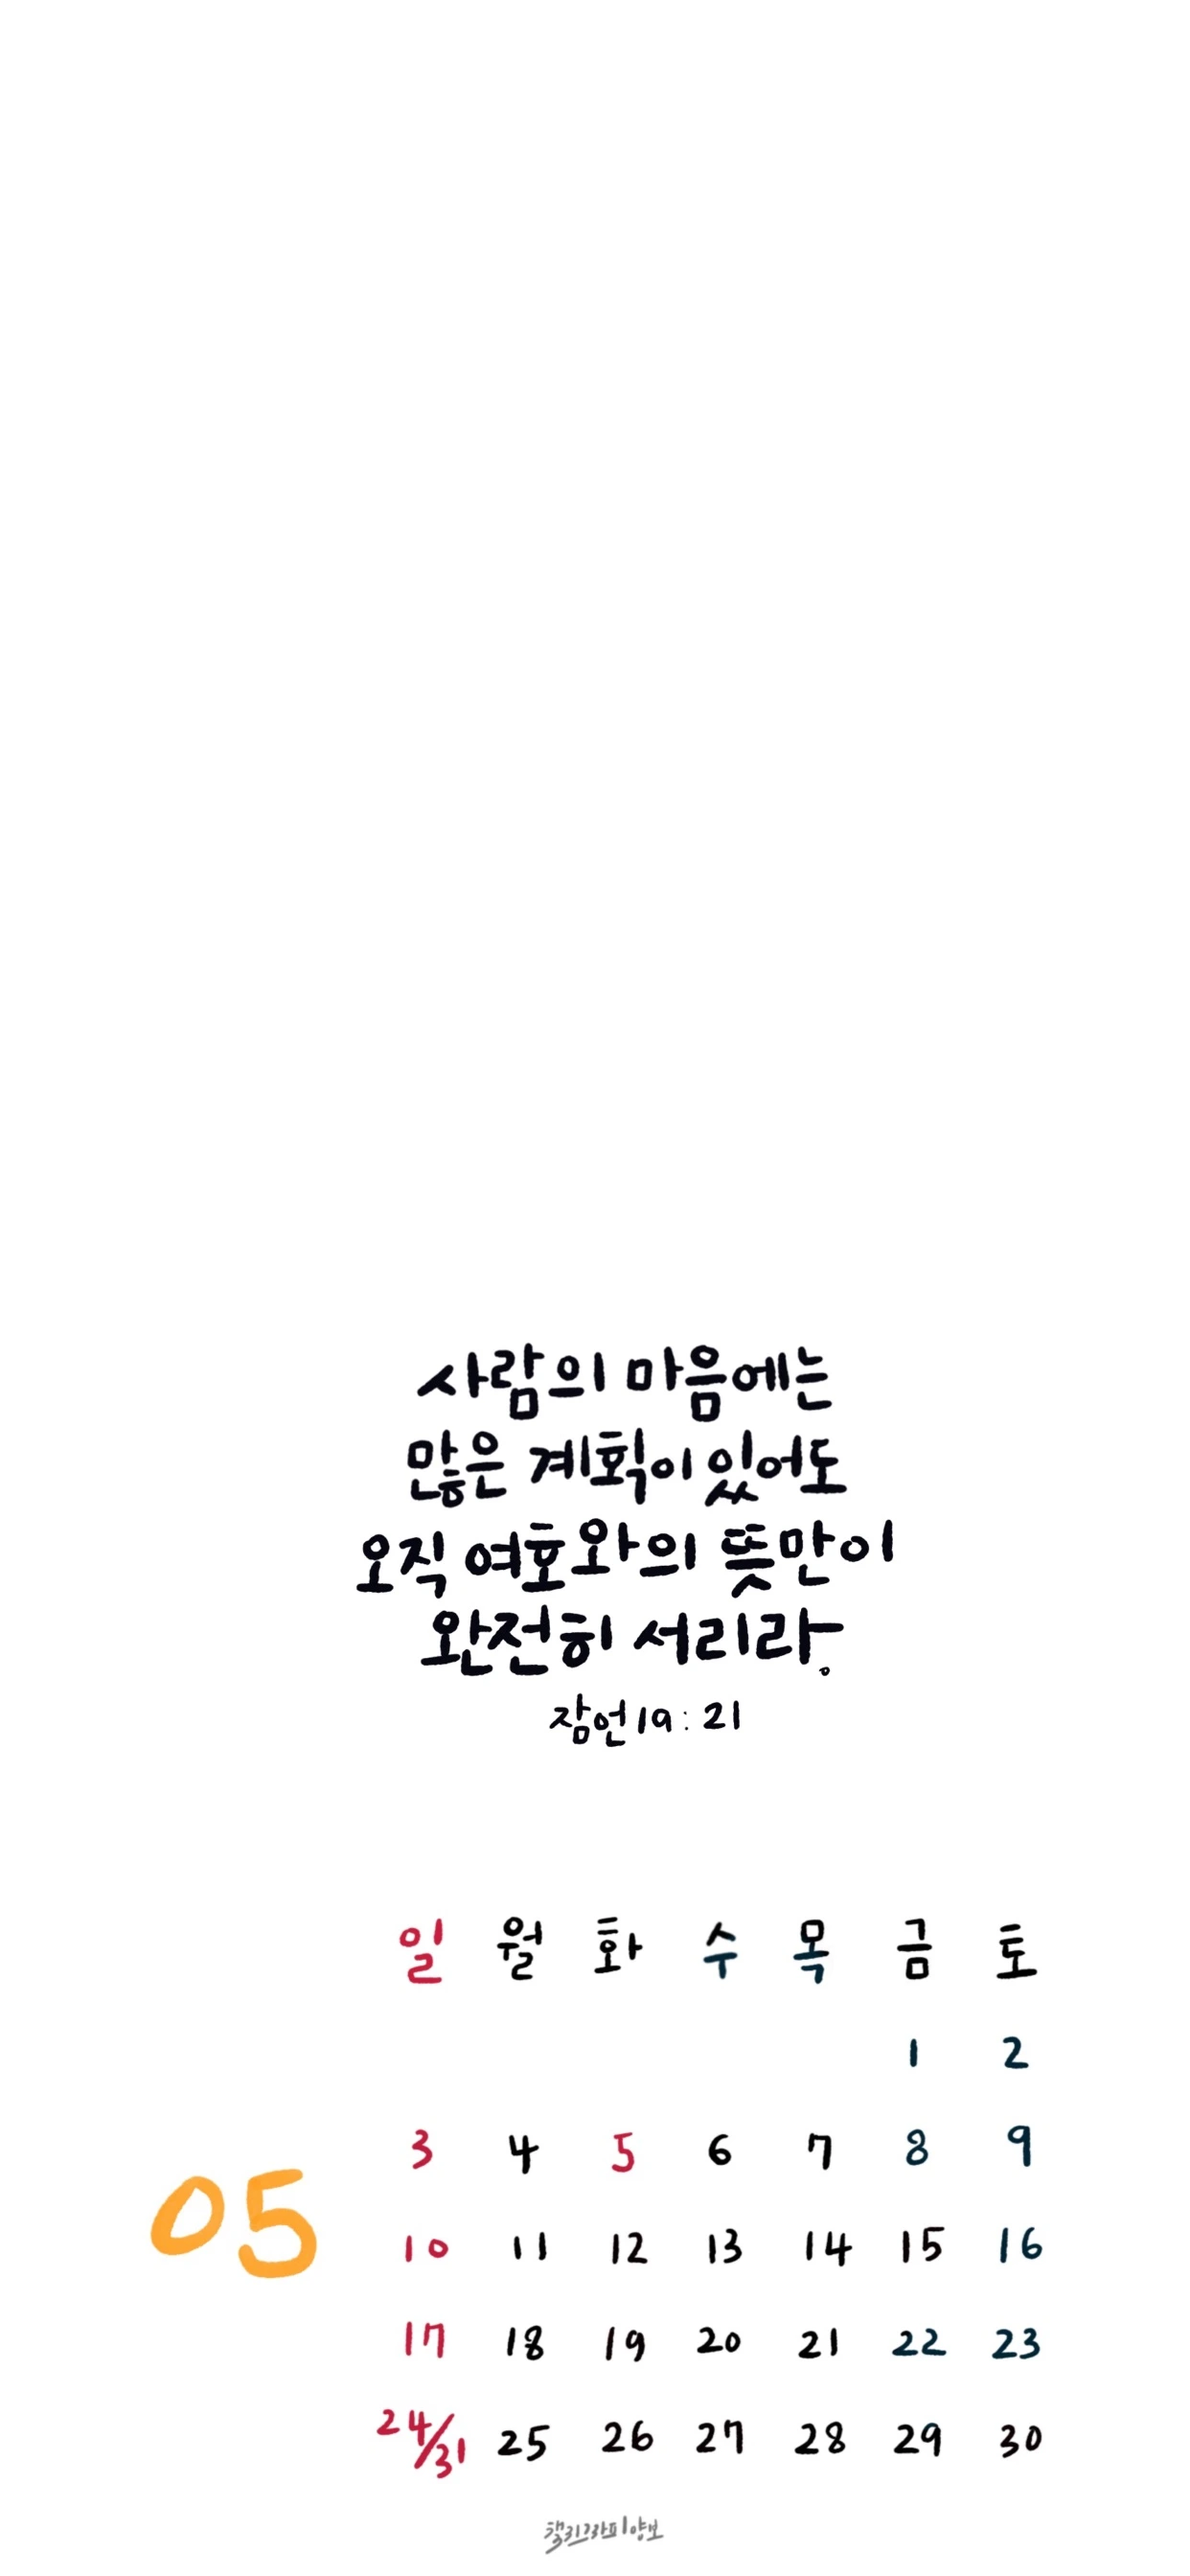 사람의 마음에는
많은 계획이 있어도
오직 여호와의 뜻만이
완전히 서리라.
잠언 19:21
일 월 화 수 목 금 토
1 2
3 4 5 6 7 8 9
05
10 11 12 13 14 15 16
17 18 19 20 21 22 23
24/31 25 26 27 28 29 30
캘리그라피양보